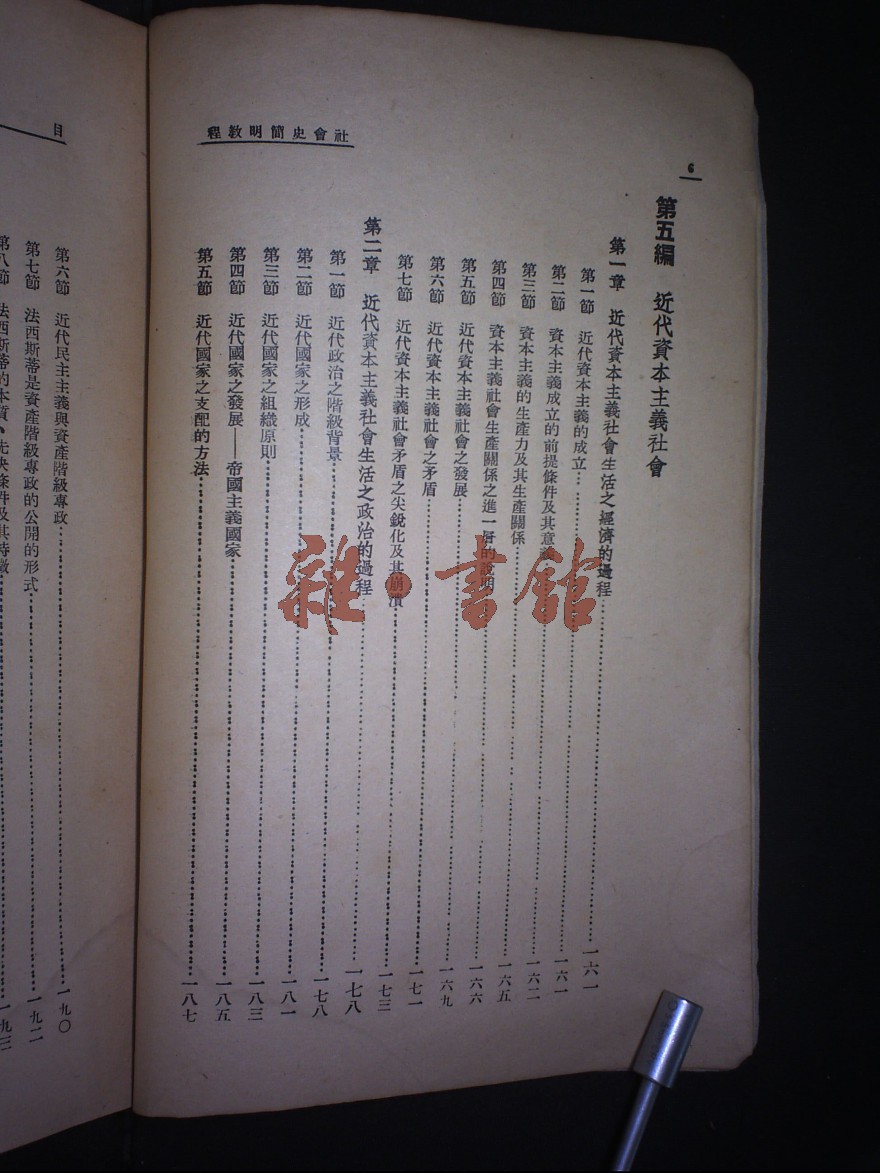 6
社會史簡明敎程
第五編　近代資本主義社會
第一章　近代資本主義社會生活之經濟的過程……一六一
第一節　近代資本主義的成立……一六一
第二節　資本主義成立的前提條件及其意義……一六二
第三節　資本主義的生產力及其生產關係……一六五
第四節　資本主義社會生產關係之進一層的說明……一六六
第五節　近代資本主義社會之發展……一六九
第六節　近代資本主義社會之矛盾……一七一
第七節　近代資本主義社會矛盾之尖銳化及其崩潰……一七三
第二章　近代資本主義社會生活之政治的過程……一七八
第一節　近代政治之階級背景……一七八
第二節　近代國家之形成……一八一
第三節　近代國家之組織原則……一八三
第四節　近代國家之發展——帝國主義國家……一八五
第五節　近代國家之支配的方法……一八七
目
第六節　近代民主主義與資產階級專政……一九〇
第七節　法西斯蒂是資產階級專政的公開的形式……一九二
第八節　法西斯蒂的本質、先決條件及其特徵
雜·書館